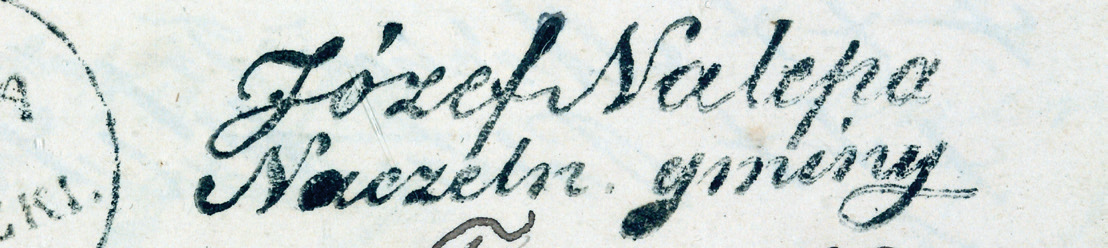 Józef Nalepa
Naczeln. gminy